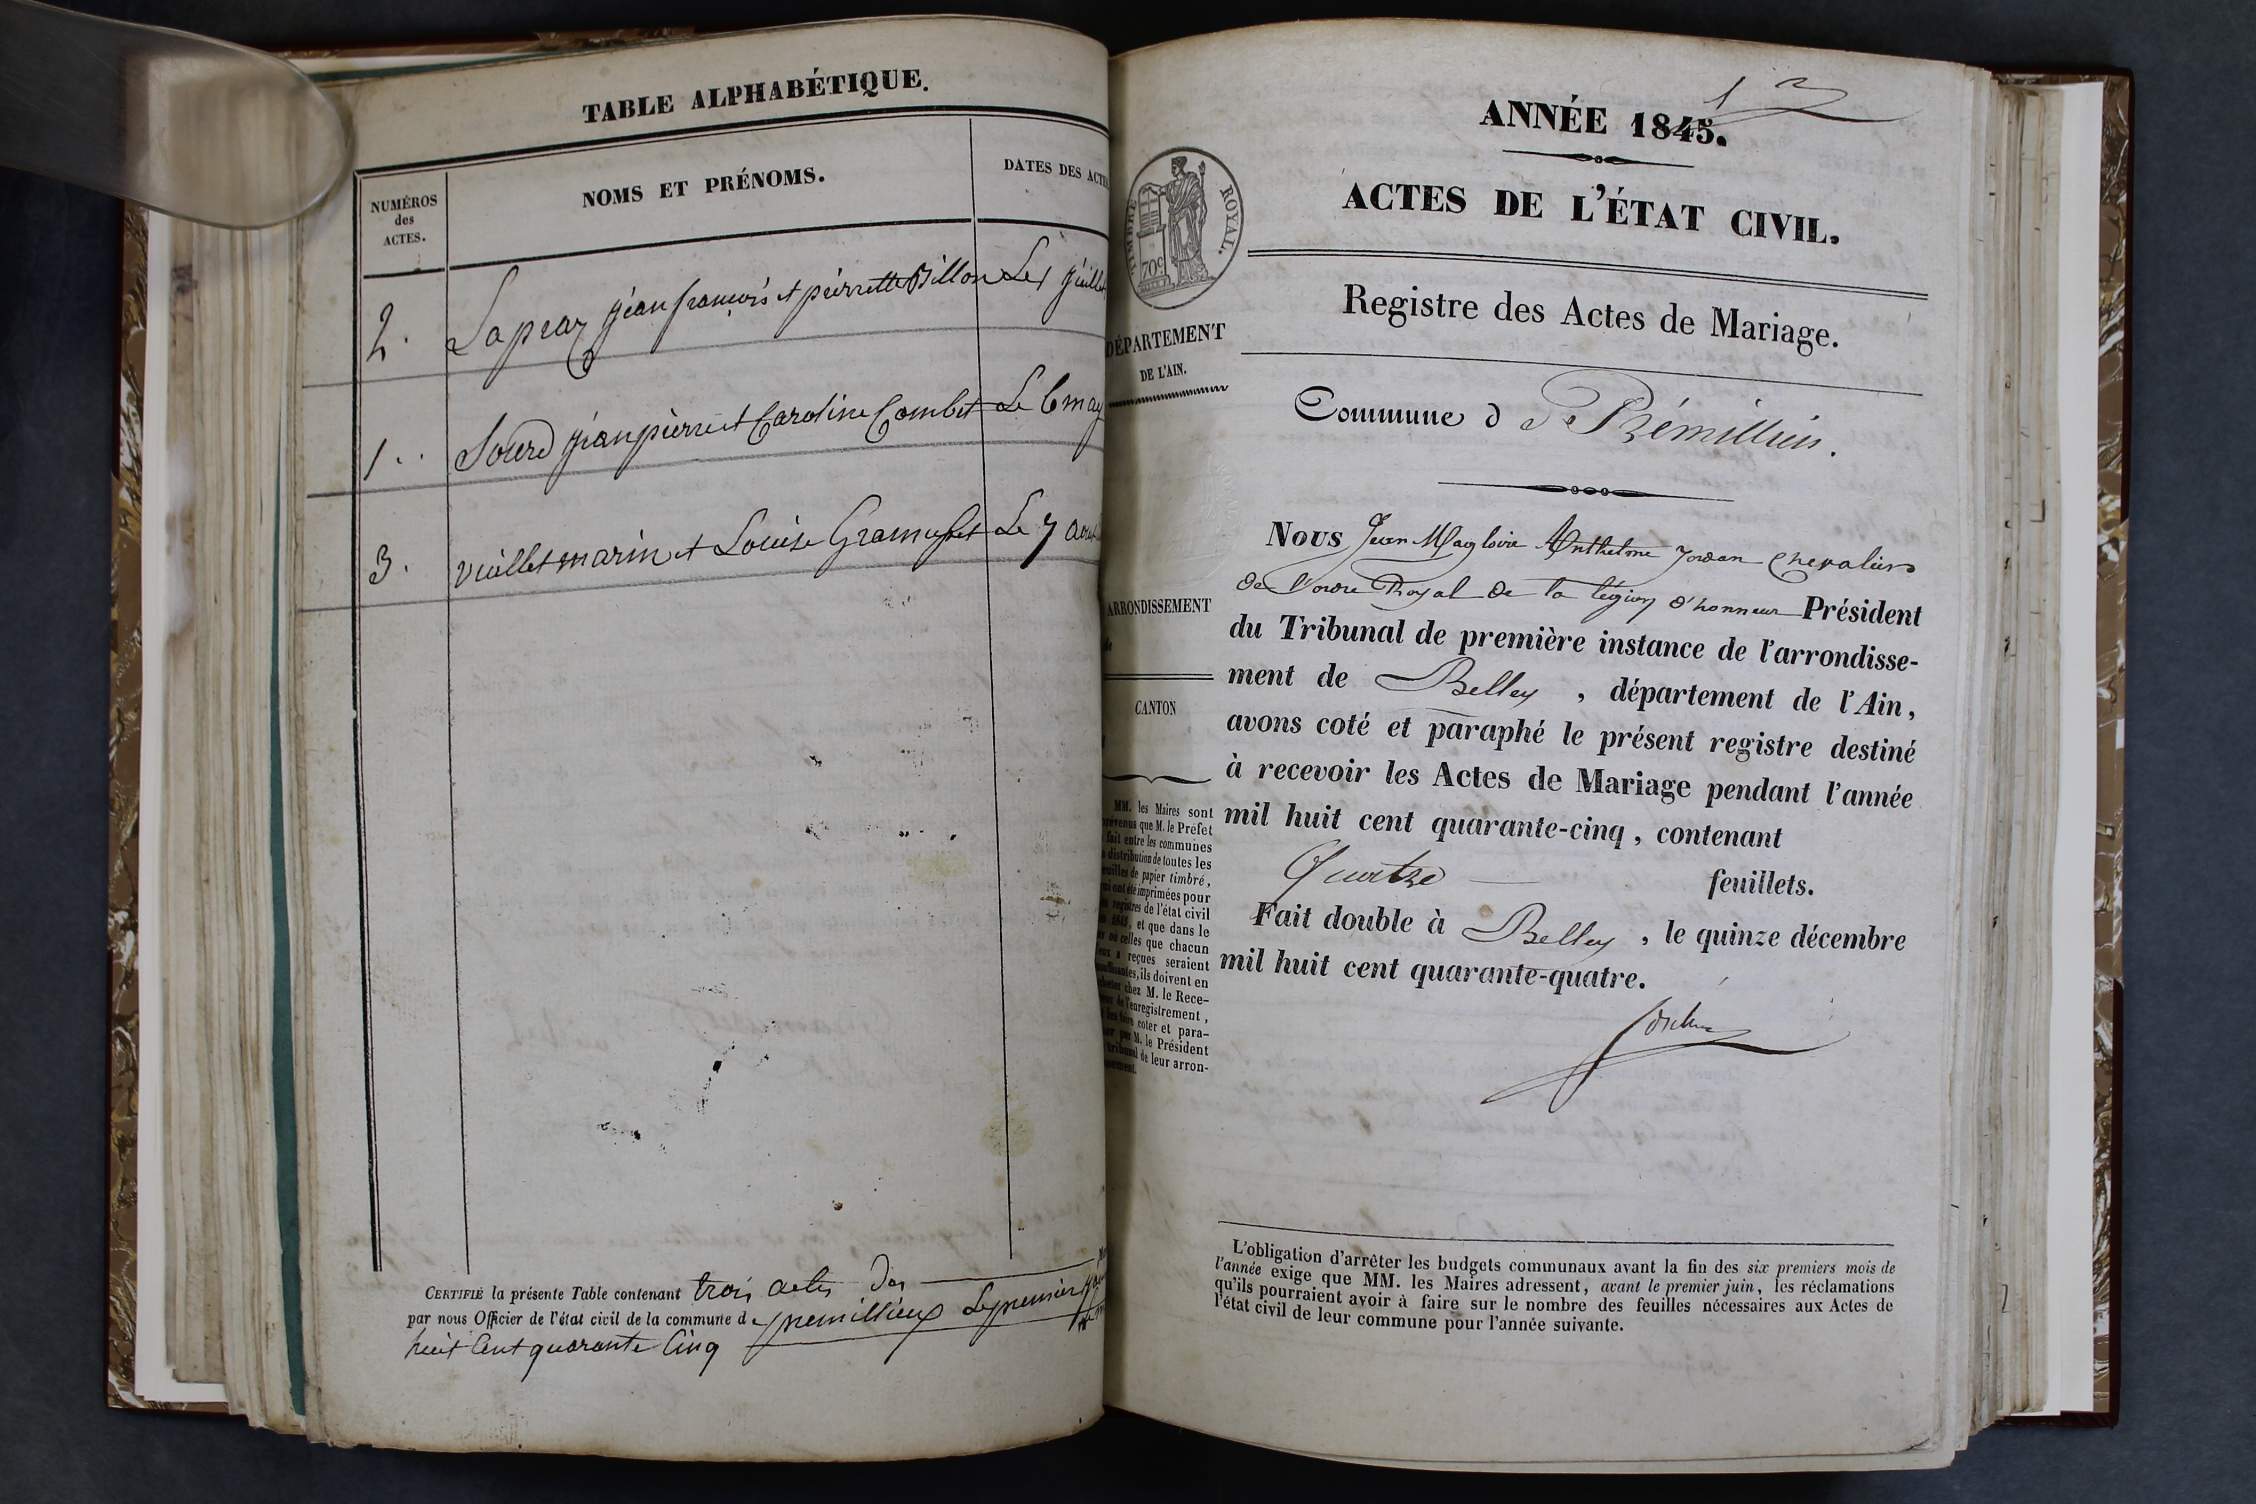 TABLE ALPHABÉTIQUE.
NUMÉROS
des
ACTES.
NOMS ET PRÉNOMS.
DATES DES ACTES
2. Lapraz jean françois et pierrette Billon Le 1 juillet
1.. Sourd jean pierre et Caroline Combet Le 6 may
3. vuillet marin et Louise Gramusset Le 7 aout
CERTIFIÉ la présente Table contenant trois actes
par nous Officier de l'état civil de la commune de premillieu Le premier
huit Cent quarante Cinq
1
ANNÉE 1845.
ACTES DE L'ÉTAT CIVIL.
TIMBRE ROYAL.
70c
Registre des Actes de Mariage.
DÉPARTEMENT
DE L'AIN.
Commune d e Prémillieu.
ARRONDISSEMENT
de
CANTON
Nous Jean Magloire Anthelme Jordan Chevalier
de l'ordre Royal de la légion d'honneur Président
du Tribunal de première instance de l'arrondisse-
ment de Belley, département de l'Ain,
avons coté et paraphé le présent registre destiné
à recevoir les Actes de Mariage pendant l'année
mil huit cent quarante-cinq, contenant
Quatre feuillets.
Fait double à Belley, le quinze décembre
mil huit cent quarante-quatre.
MM. les Maires sont
prévenus que M. le Préfet
fait entre les communes
distribution de toutes les
feuilles de papier timbré,
qui ont été imprimées pour
registres de l'état civil
1845, et que dans le
où celles que chacun
a reçues seraient
insuffisantes, ils doivent en
acheter chez M. le Rece-
de l'enregistrement,
les faire coter et para-
par M. le Président
tribunal de leur arron-
dissement.
L'obligation d'arrêter les budgets communaux avant la fin des six premiers mois de
l'année exige que MM. les Maires adressent, avant le premier juin, les réclamations
qu'ils pourraient avoir à faire sur le nombre des feuilles nécessaires aux Actes de
l'état civil de leur commune pour l'année suivante.